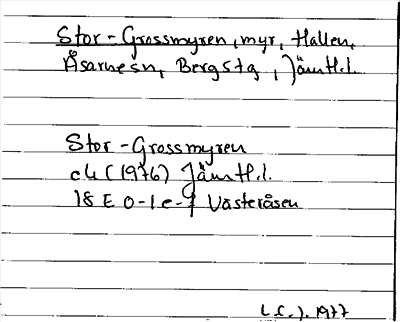 Stor-Grossmyren, myr, Hallen,
Åsarnesn, Bergstg, Jämtl.l.
Stor-Grossmyren
ek (1976) Jämtl.l.
18 E 0-1 e-f Västeråsen
1977